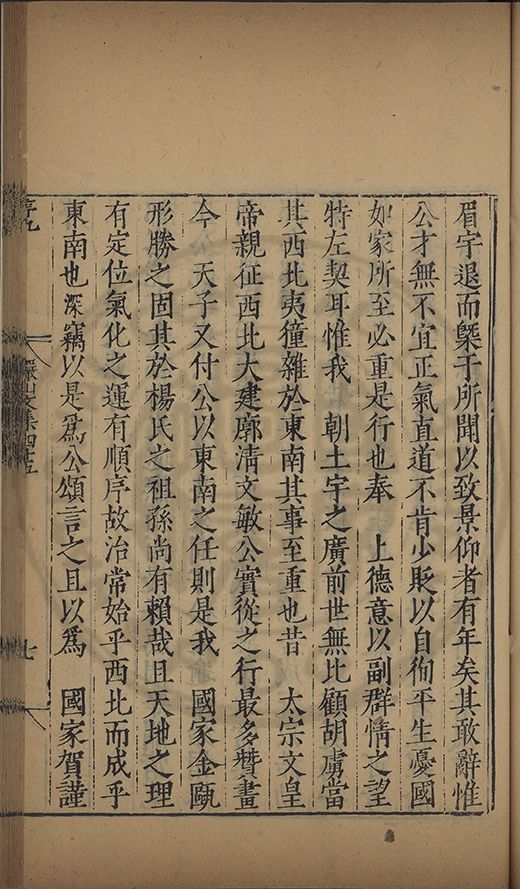 眉宇退而槩于所聞以致景仰者有年矣其敢辭惟
公才無不宜正氣直道不肯少貶以自徇平生憂國
如家所至必重是行也奉　上德意以副群情之望
特左契耳惟我　朝土宇之廣前世無比顧胡虜當
其西北夷獞雜於東南其事至重也昔　太宗文皇
帝親征西北大建廓清文敏公實從之行最多贊畫
今　天子又付公以東南之任則是我　國家金甌
形勝之固其於楊氏之祖孫尚有賴哉且天地之理
有定位氣化之運有順序故治常始乎西北而成乎
東南也深竊以是爲公頌言之且以爲　國家賀謹
七